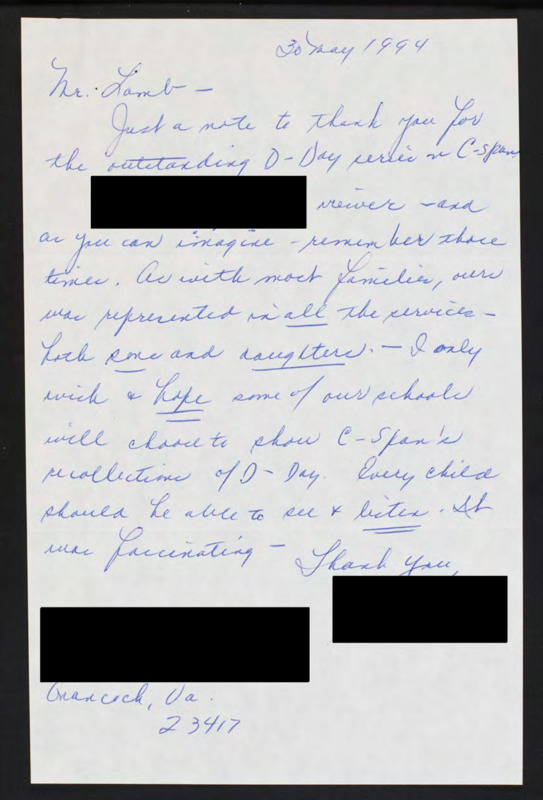 30 May 1994
Mr. Lamb —
Just a note to thank you for
the outstanding D-Day series on C-Span
viewer - and
as you can imagine - remember those
times. As with most families, ours
was represented in all the services -
both sons and daughters. - I only
wish & hope some of our schools
will choose to show C-Span's
recollections of D-Day. Every child
should be able to see & listen. It
was fascinating -
Thank You,
Onancock, Va.
23417